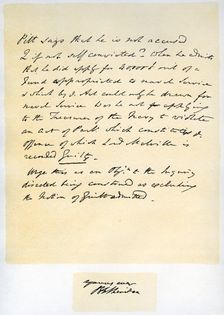 Pitt says that he is not accused
& if not self convicted? When he admits
that he did apply for 40000£ out of a
Fund appropriated to naval Service
& which by d. Act could only be drawn for
naval Service was he not applying
to the Treasurer of the Navy to violate
an Act of Parlt which constitutes d.
offence of which Lord Melville is
recorded Guilty.
Urge this as an Objn to the Inquiry
directed being construed as excluding
the Notion of Guilt admitted.
yours ever
R B Sheridan